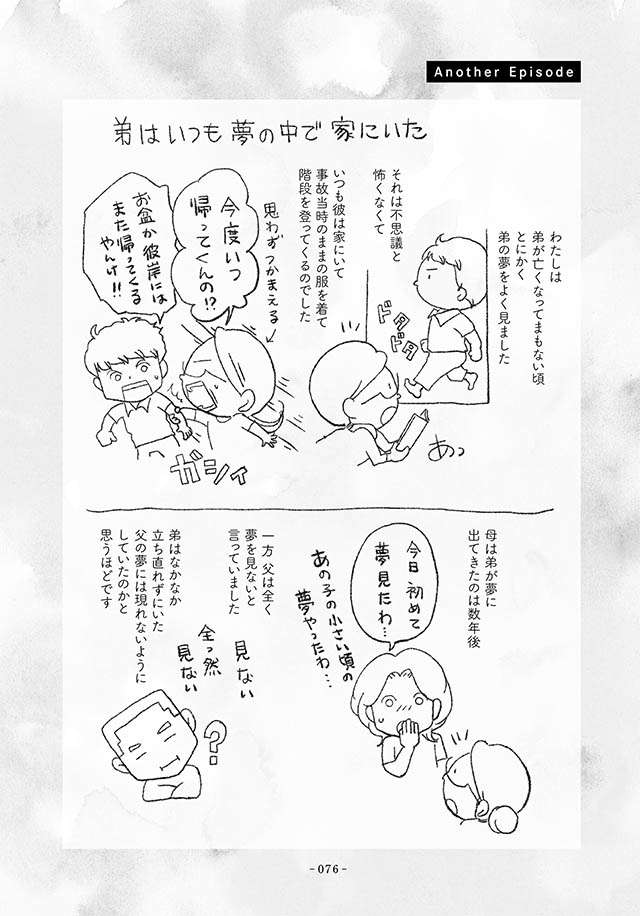 Another Episode
弟はいつも夢の中で家にいた
わたしは
弟が亡くなってまもない頃
とにかく
弟の夢をよく見ました
ドタ
ドタ
あっ
それは不思議と
怖くなくて
いつも彼は家にいて
事故当時のままの服を着て
階段を登ってくるのでした
思わずつかまえる
今度いつ
帰ってくんの!?
お盆か彼岸には
また帰ってくる
やんけ!!
ガシィ
母は弟が夢に
出てきたのは数年後
今日初めて
夢見たわ…
あの子の小さい頃の
夢やったわ…
一方 父は全く
夢を見ないと
言っていました
見ない
全っ然
見ない
?
弟はなかなか
立ち直れずにいた
父の夢には現れないように
していたのかと
思うほどです
-076-